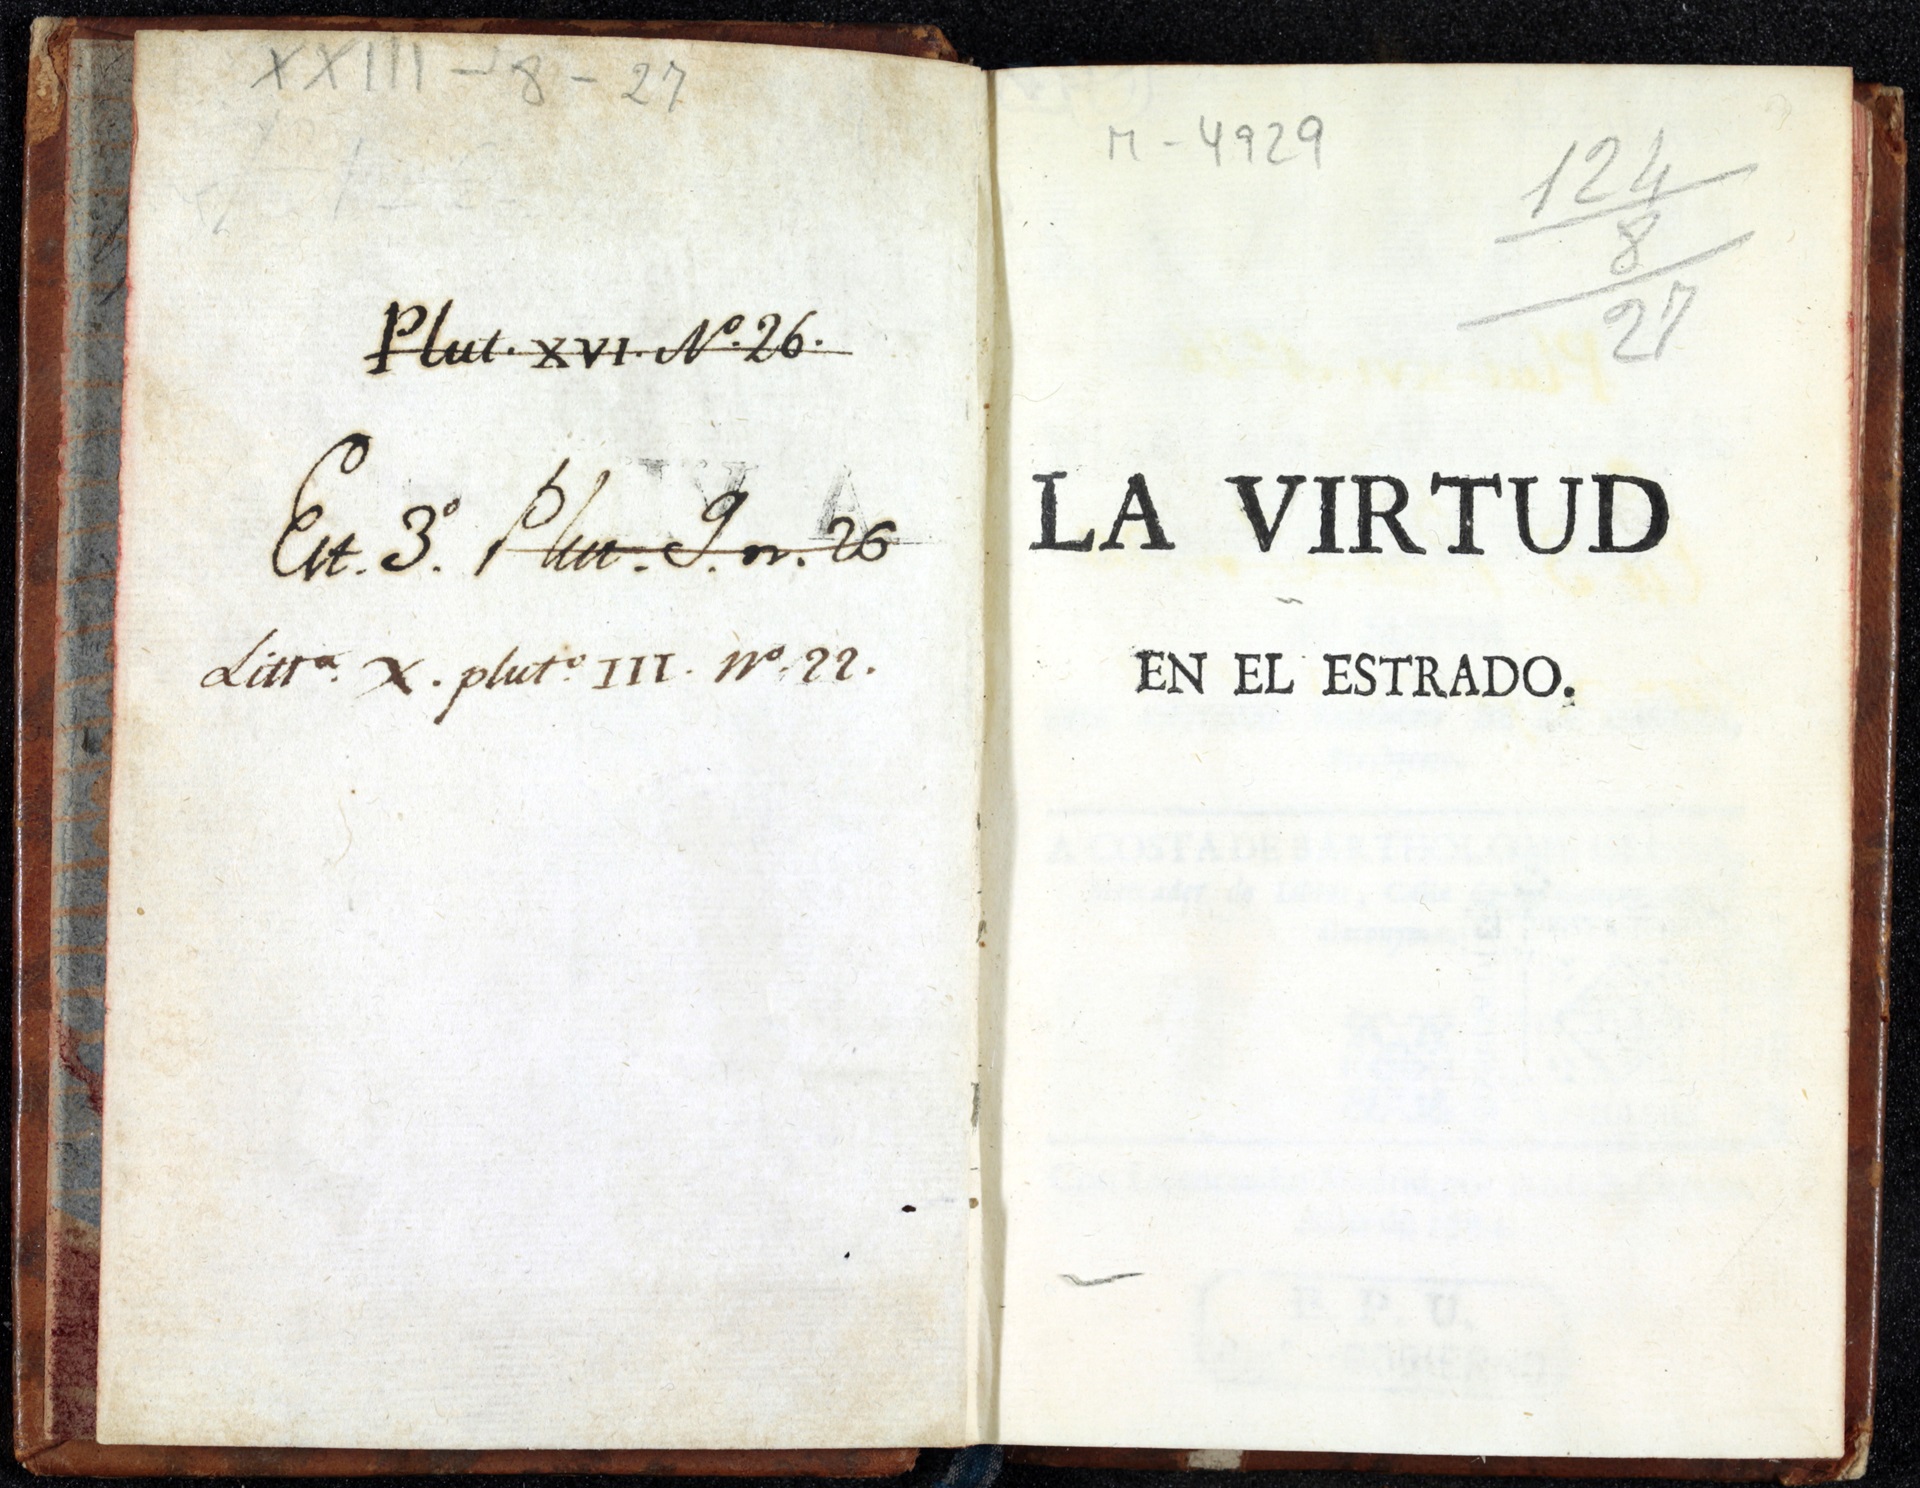 XXIII - 8 - 27
Plut. XVI. Nº 26.
Est. 3º. Plut. 9. n. 26
Littª. X. plutº III. Nº 22.
M - 4929
124
8
27
LA VIRTUD
EN EL ESTRADO.